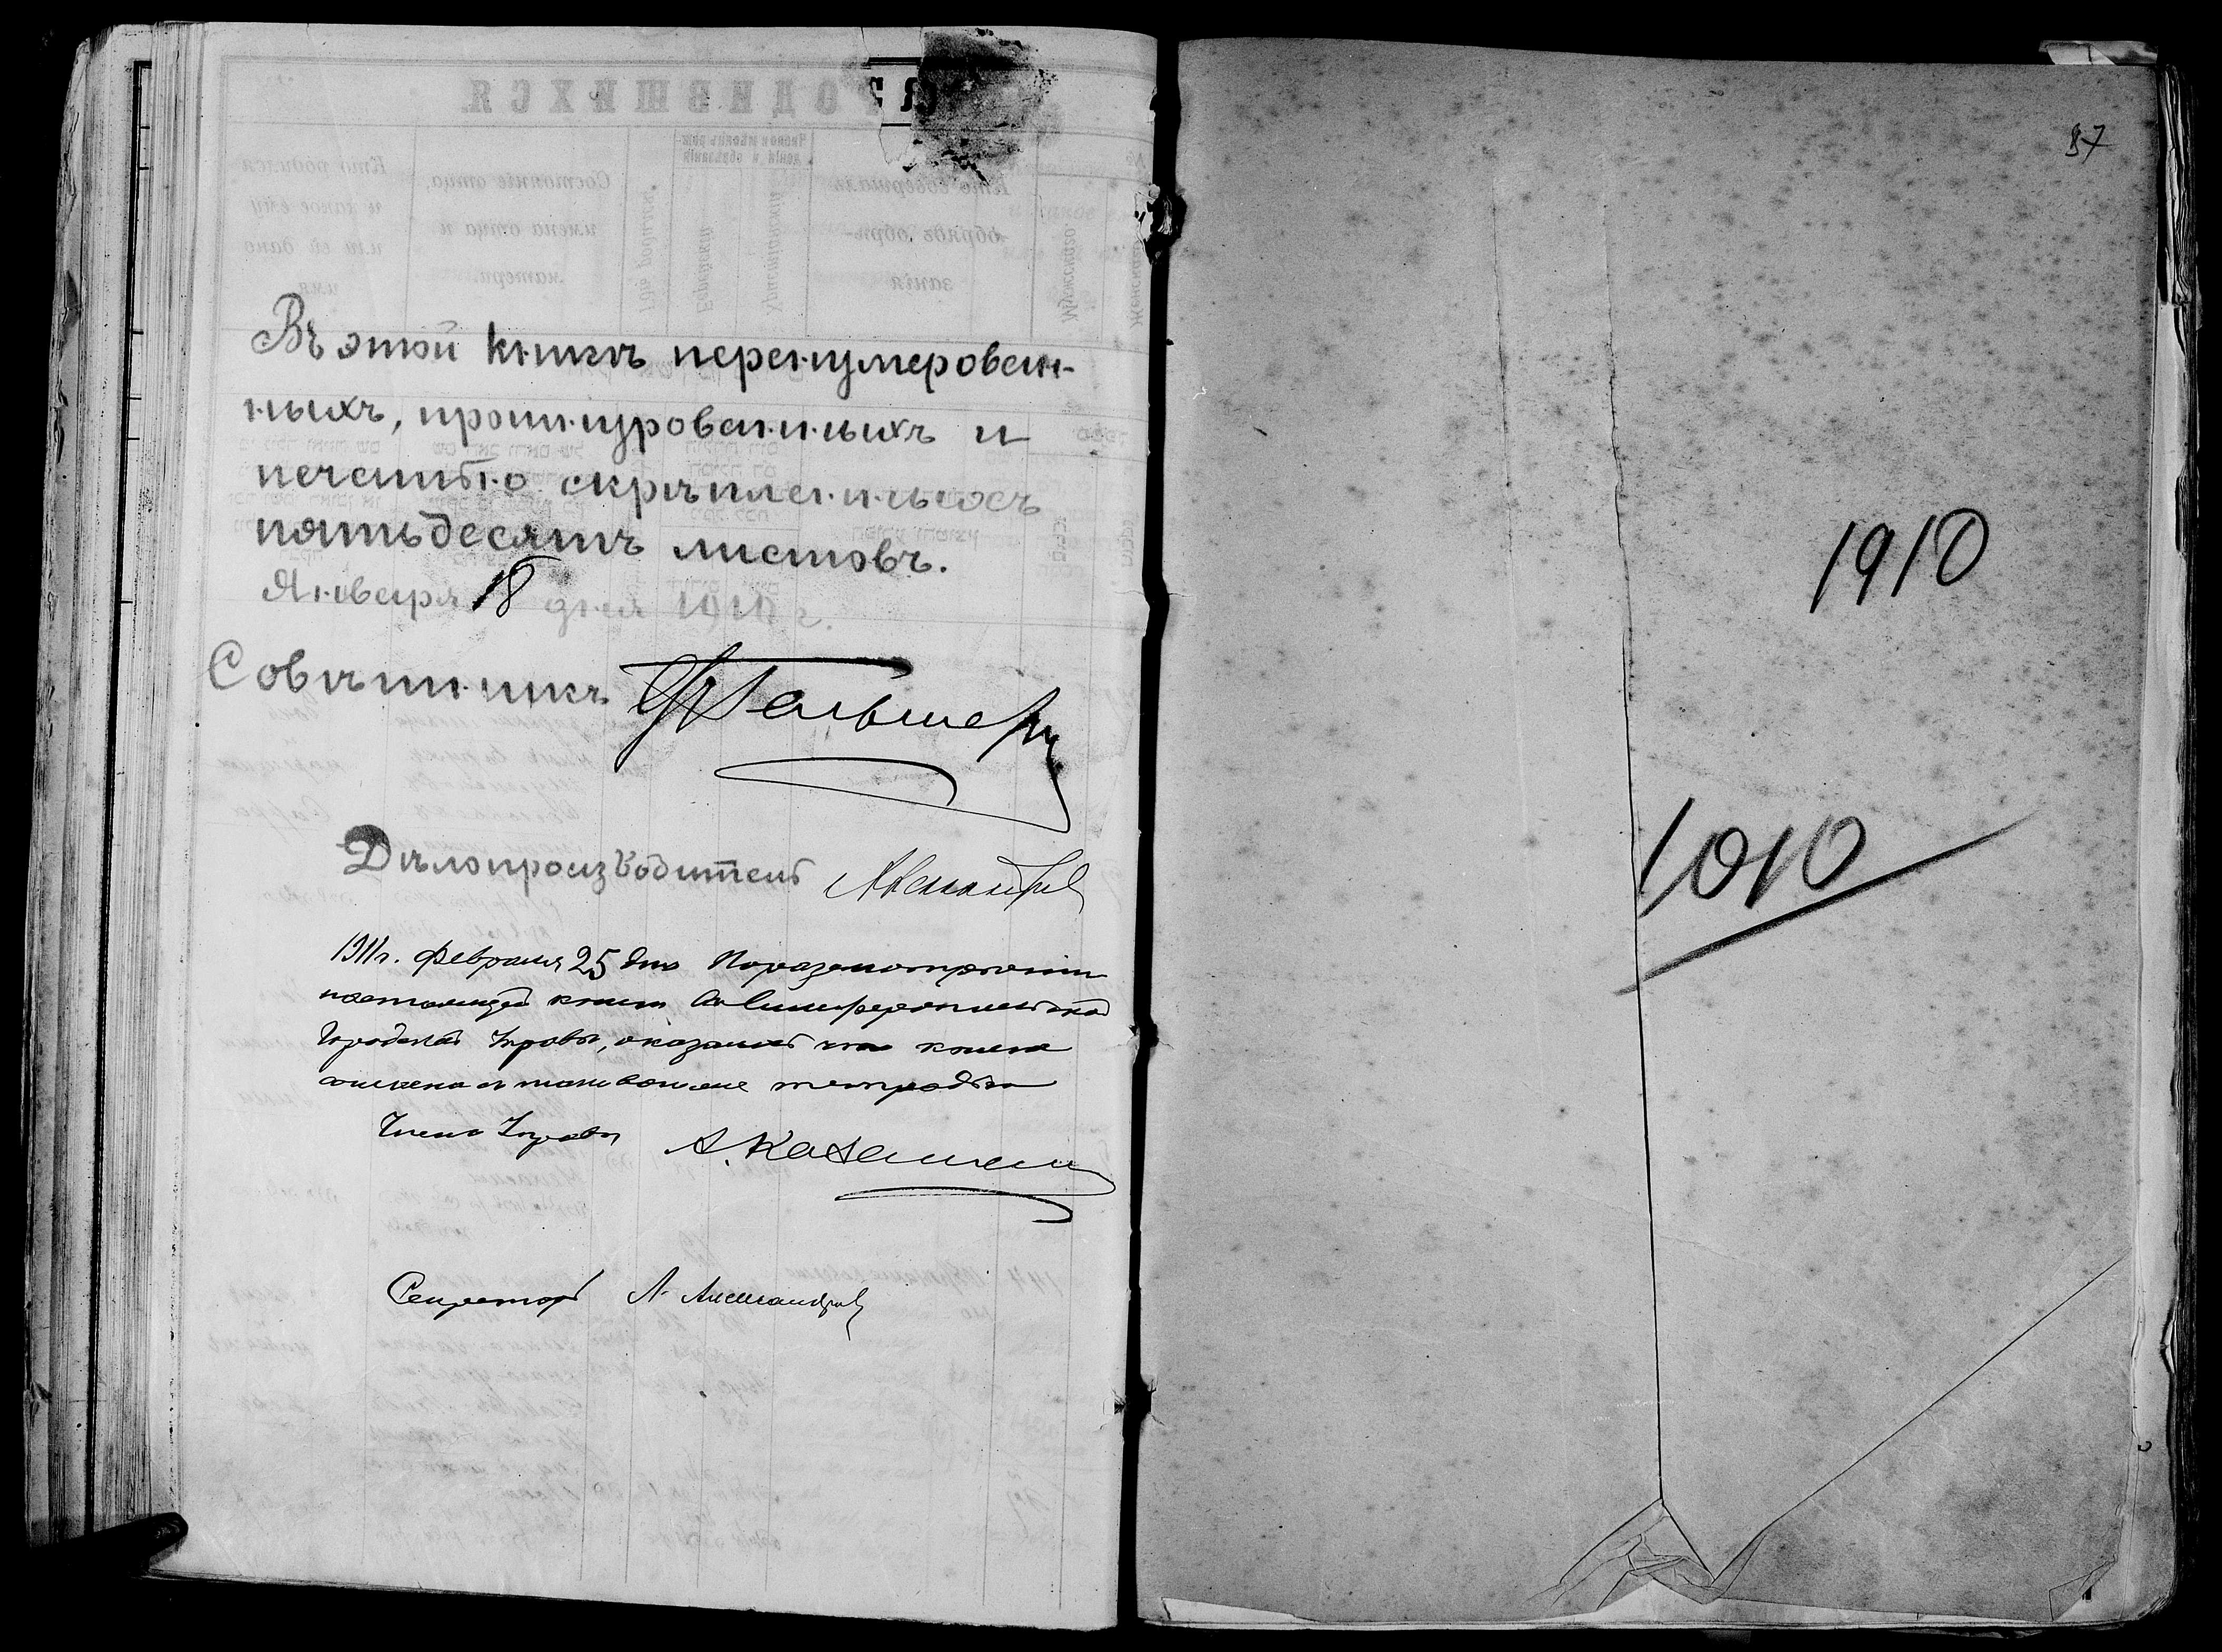 Въ этой книгѣ перенумерован-
ныхъ, прошнурованныхъ и
печатью скрѣпленныхъ
пятьдесятъ листовъ.
Января 18 дня 1910 г.
Совѣтникъ
Дѣлопроизводитель
1911 г. Февраля 25 дня По разсмотрѣнiи
настоящей книги въ Симферопольской
Городской Управѣ, оказалось что книга
тетрадью
Членъ Управы А.
Секретарь А. Александровъ
37
1910
1910